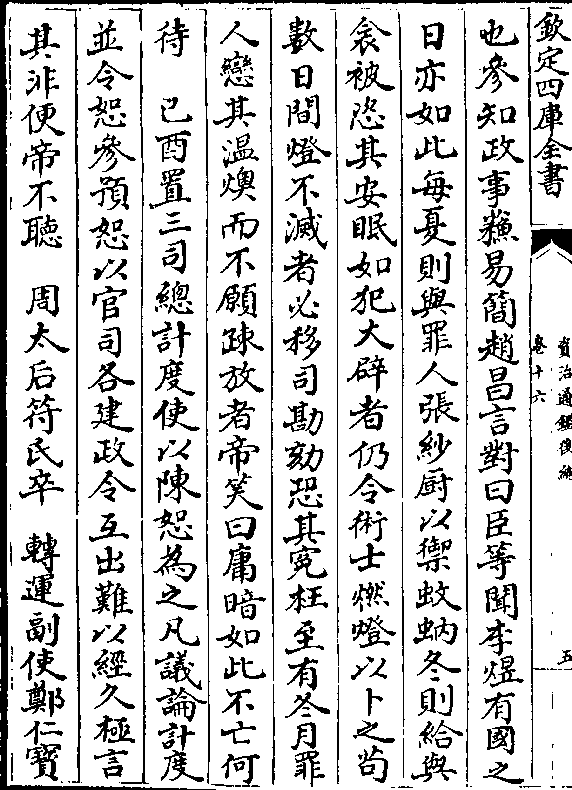 欽定四庫全書
資治通鑑後編
卷十六
五
也參知政事蘇易簡趙昌言對曰臣等聞李煜有國之
日亦如此每夏則與罪人張紗厨以禦蚊蚋冬則給與
衾被恐其安眠如犯大辟者仍令術士燃燈以卜之茍
數日間燈不滅者必移司勘劾恐其寃枉至有冬月罪
人戀其温燠而不願疎放者帝笑曰庸暗如此不亡何
待 己酉置三司總計度使以陳恕為之凡議論計度
並令恕參預恕以官司各建政令互出難以經久極言
其非便帝不聽 周太后符氏卒 轉運副使鄭仁寳